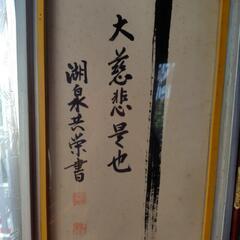 大慈悲是也
湖泉共栄書